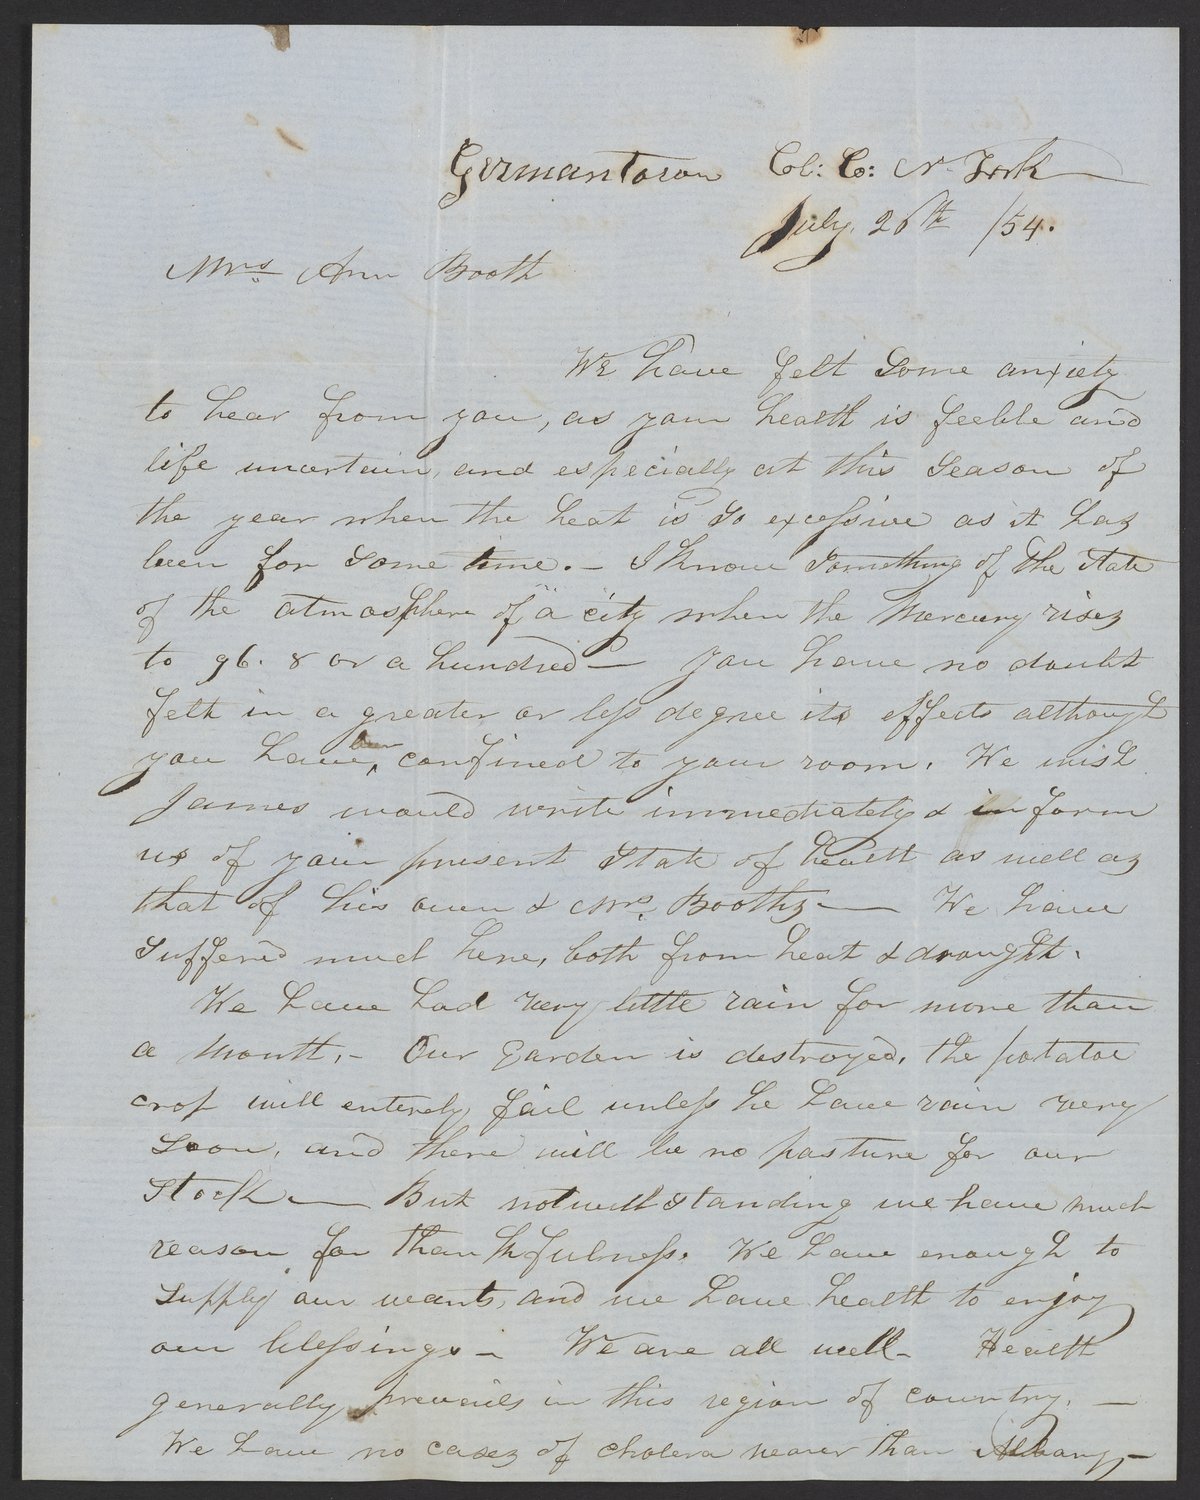 Germantown Col: Co: N. York
July 26th /54.
Mrs Ann Booth
We have felt some anxiety
to hear from you, as your health is feeble and
life uncertain, and especially at this season of
the year when the heat is so excessive as it has
been for some time. — I know something of the state
of the atmosphere of a city when the Mercury rises
to 96. 8 or a hundred — You have no doubt
felt in a greater or less degree its effects although
you have been confined to your room. We wish
James would write immediately & inform
us of your present state of health as well as
that of his own & Mrs. Booths — We have
suffered much here, both from heat & drought.
We have had very little rain for more than
a month. — Our Garden is destroyed, the potatoe
crop will entirely fail unless he have rain very
soon, and there will be no pasture for our
stock — But notwithstanding we have much
reason for thankfulness. We have enough to
supply our wants, and we have health to enjoy
our blessings — We are all well — Health
generally prevails in this region of country. —
We have no cases of cholera nearer than Albany, —